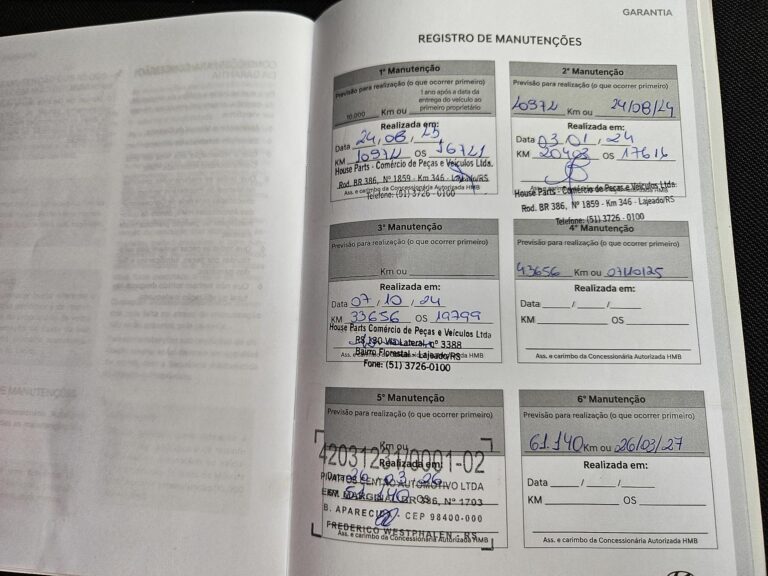 GARANTIA
REGISTRO DE MANUTENÇÕES
1ª Manutenção
Previsão para realização (o que ocorrer primeiro)
10.000 Km ou 1 ano após a data da entrega do veículo ao primeiro proprietário
Realizada em:
Data 24, 08, 23
KM 10974 OS 16721
House Parts - Comércio de Peças e Veículos Ltda.
Rod. BR 386, Nº 1859 - Km 346 - Lajeado/RS
Ass. e carimbo da Concessionária Autorizada HMB
Telefone: (51) 3726-0100
2ª Manutenção
Previsão para realização (o que ocorrer primeiro)
Km ou 24/08/24
Realizada em:
Data 03, 01, 24
KM 20403 OS 17616
House Parts - Comércio de Peças e Veículos Ltda.
Ass. e carimbo da Concessionária Autorizada HMB
Rod. BR 386, Nº 1859 - Km 346 - Lajeado/RS
Telefone: (51) 3726-0100
3ª Manutenção
Previsão para realização (o que ocorrer primeiro)
Km ou
Realizada em:
Data 07, 10, 24
KM 33656 OS 19799
House Parts Comércio de Peças e Veículos Ltda
RS 130 Via Lateral, nº 3388
Bairro Florestal - Lajeado/RS
Ass. e carimbo da Concessionária Autorizada HMB
Fone: (51) 3726-0100
4ª Manutenção
Previsão para realização (o que ocorrer primeiro)
43656 Km ou 07/10/25
Realizada em:
Data / /
KM OS
Ass. e carimbo da Concessionária Autorizada HMB
5ª Manutenção
Previsão para realização (o que ocorrer primeiro)
Km ou
42031231/0001-02
Realizada em:
Data 26, 03, 26
CENTRO AUTOMOTIVO LTDA
KM 51140 OS
MARGINAL BR 386, Nº 1703
B. APARECIDA - CEP 98400-000
FREDERICO WESTPHALEN - RS
Ass. e carimbo da Concessionária Autorizada HMB
6ª Manutenção
Previsão para realização (o que ocorrer primeiro)
61.140 Km ou 26/03/27
Realizada em:
Data / /
KM OS
Ass. e carimbo da Concessionária Autorizada HMB